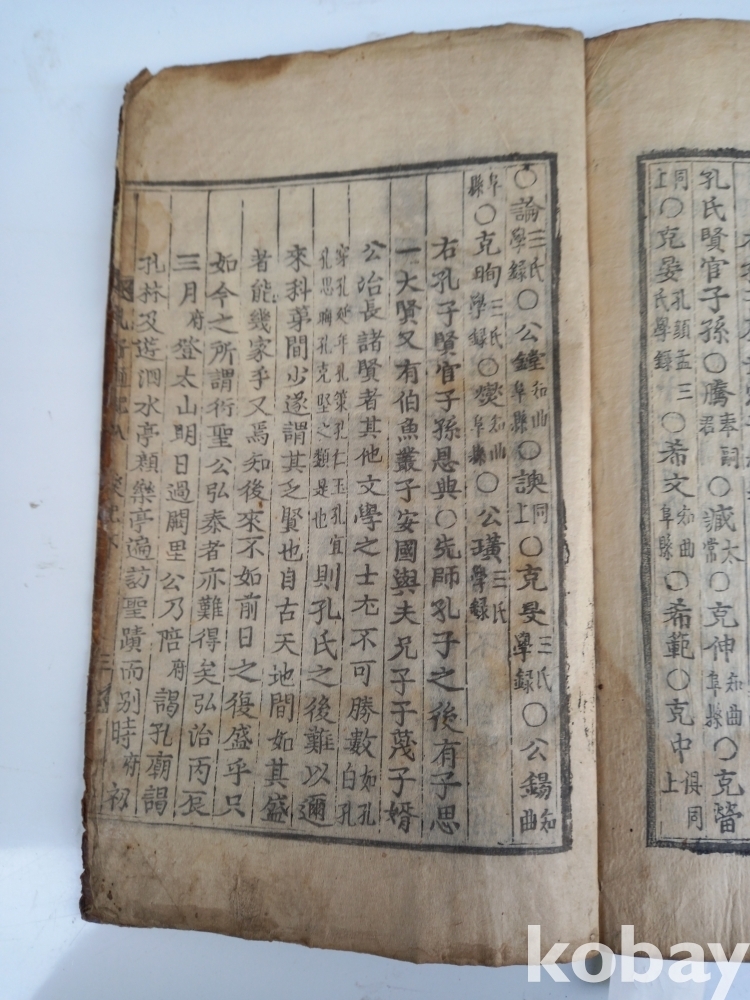 孔氏賢官子孫○騰奉詞君○臧太常○克伸知曲阜縣○克
同上○克晏孔顏孟三氏學錄○希文知曲阜縣○希範○克中俱同上
○論三氏學錄○公鏜知曲阜縣○謨同上○克旻三氏學錄○公錫知曲
阜縣○克昫三氏學錄○知曲阜縣○公璜三氏學錄
右孔子賢官子孫恩典○先師孔子之後有子思
一大賢又有伯魚叢子安國與夫兄子子蔑子婿
公冶長諸賢者其他文學之士尤不可勝數如孔白孔
穿孔延年孔策孔仁玉孔宜孔思晦孔克堅之類是也則孔氏之後難以邇
來科第間少遂謂其乏賢也自古天地間如其盛
者能幾家乎又焉知後來不如前日之復盛乎只
如今之所謂衍聖公弘泰者亦難得矣弘治丙辰
三月府登太山明日過闕里公乃陪府謁孔廟謁
孔林及遊泗水亭顏樂亭遍訪聖蹟而別時府初
kobay